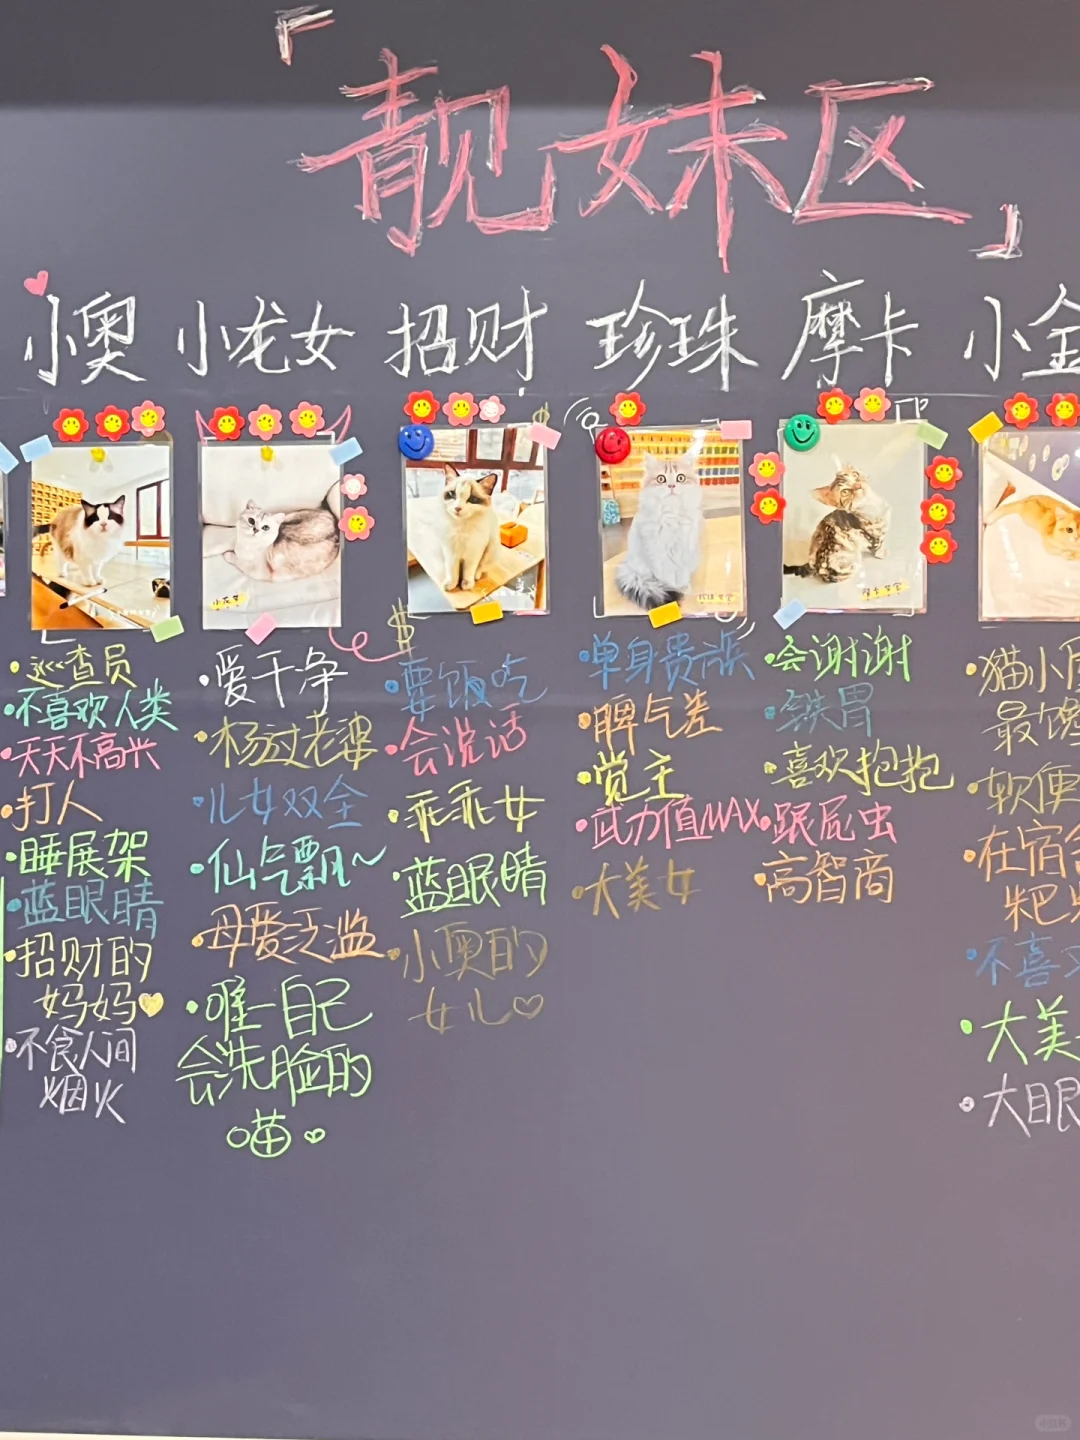 「靓妹区」
小奥
·巡查员
·不喜欢人类
·天天不高兴
·打人
·睡展架
·蓝眼睛
·招财的
妈妈
·不食人间
烟火
小龙女
小龙女
·爱干净
·杨过老婆
·儿女双全
·仙气飘~
·母爱泛滥
·唯一自己
会洗脸的
喵
招财
$
$
·要饭吃
·会说话
·乖乖女
·蓝眼睛
·小奥的
女儿♡
珍珠
·单身贵族
·脾气差
·觉主
·武力值MAX
·大美女
摩卡
·会谢谢
·铁胃
·喜欢抱抱
·跟屁虫
·高智商
小金
·猫小
最馋
·软便
·在宿舍
粑
·不喜
·大美
·大眼